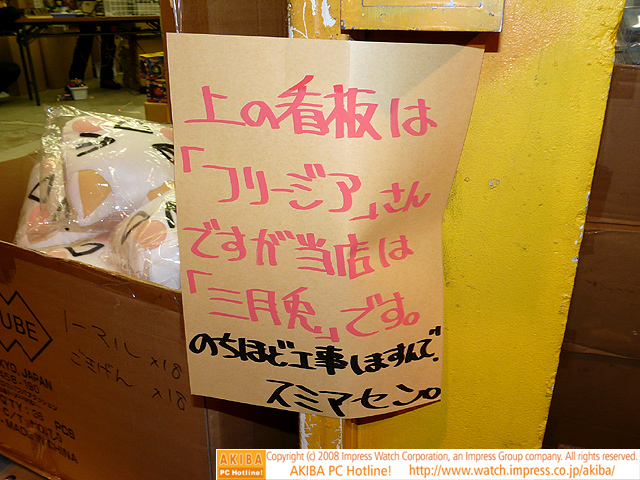 上の看板は
「フリージア」さん
ですが当店は
「三月兎」です。
のちほど工事しますんで、
スミマセン。
UBE
ノーマル ×18
ごきげん ×18
KYO, JAPAN
QTY: 36 PCS
MADE IN CHINA
AKIBA
PC Hotline!
Copyright (c) 2008 Impress Watch Corporation, an Impress Group company. All rights reserved.
AKIBA PC Hotline! http://www.watch.impress.co.jp/akiba/